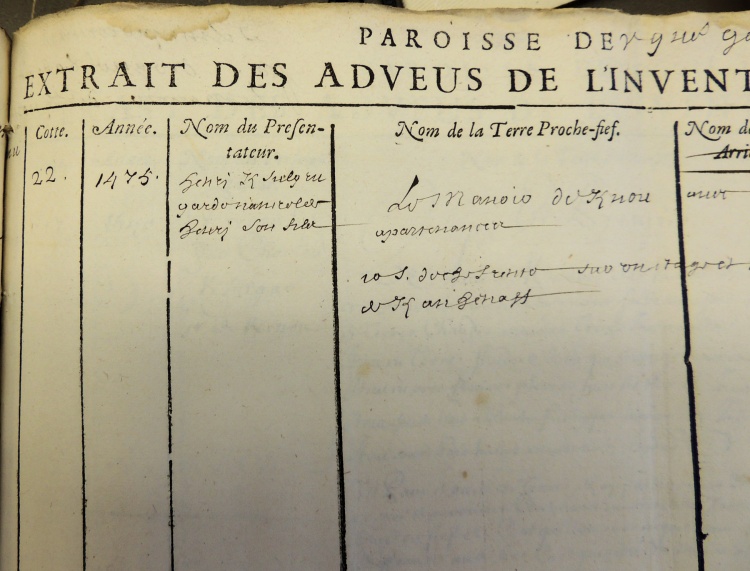 PAROISSE DE
EXTRAIT DES ADVEUS DE L'INVENT
Cotte.
Année.
Nom du Presen-
tateur.
Nom de la Terre Proche-fief.
Nom d
Arri
22.
1475.
henrj K
garde naturel de
henrj son filz
Le Manoir de K avec
apartenances
10 s. de chefrente sur un
de K